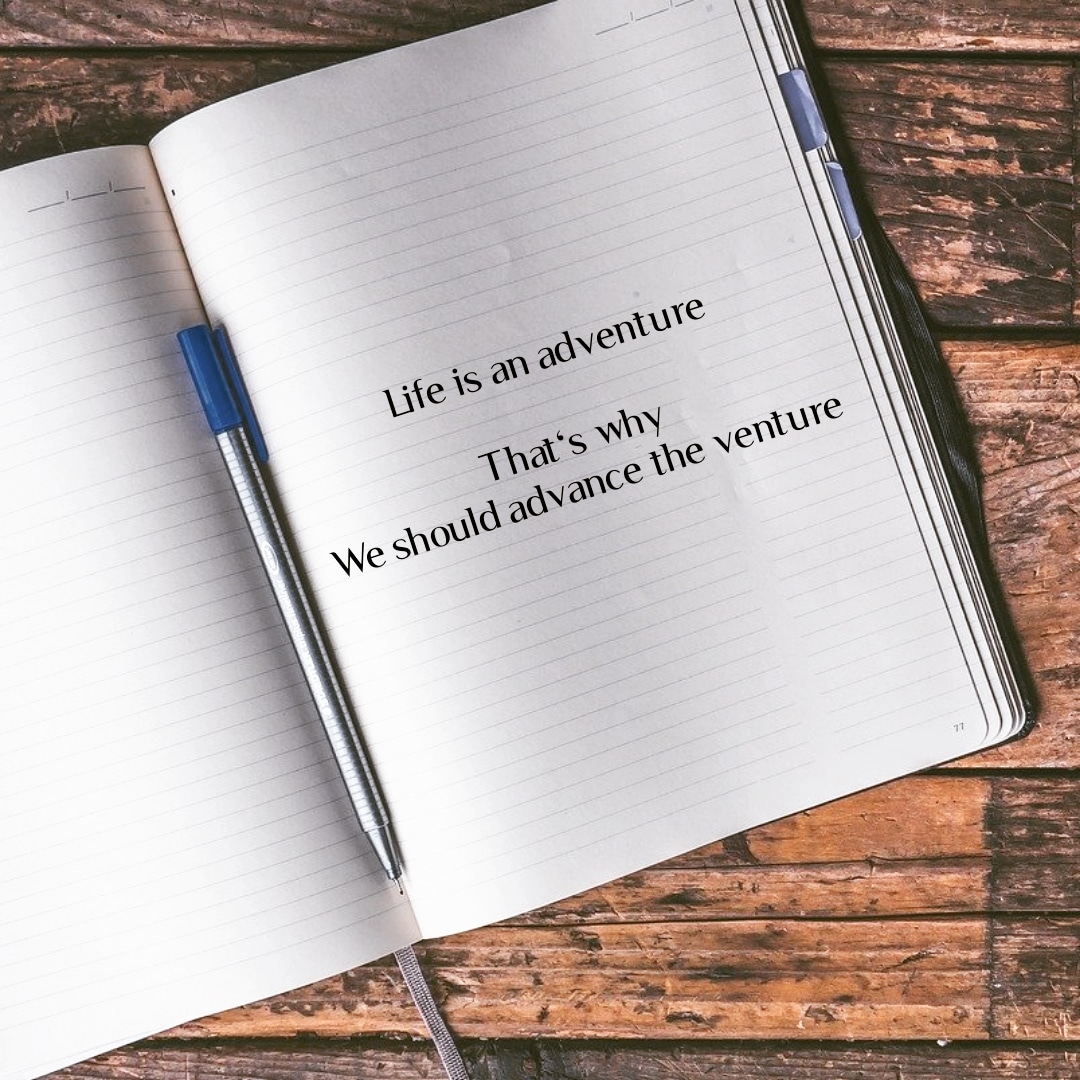 Life is an adventure
That‘s why
We should advance the venture
77